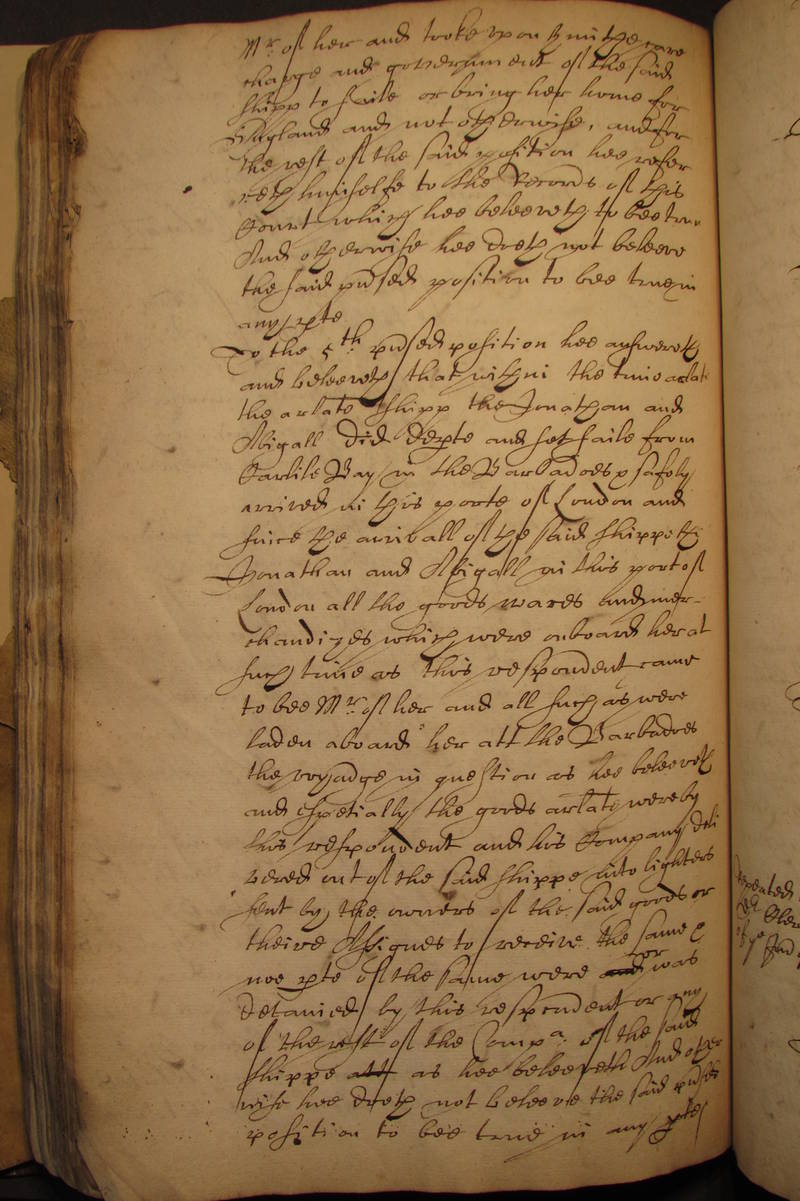 Mr of her and tooke upon him the care
charge and government of the said
shipp to saile or bring her home for
England and not otherwise, and for
the rest of the said position hee refer
reth himselfe to the Records of this
Court which hee beleeveth to bee true
And otherwise hee doeth not beleeve
the said prdsed position to bee true in
any pte
To the 5th prdsed position hee answereth
and beleeveth that within the time arlate
the arlate shipp the Jonathan and
Abigall did depte and set saile from
Carlile Bay in the Barbadoes & safely
arrived in this porte of London and
since the arivall of the said shippe the
Jonathan and Abigall in this port of
London all the goods wares and mer-
chandizes which were onboard her at
such time as this respondent came
to bee Mr of her and all such as were
laden aboard her att the Barbadoes
the voyadge in question as hee beleeveth
and espetially the goods arlate were by
this respondent and his Company deli
vered out of the said shippe into lighters
sent by the owners of the said goods or
theire Assignes to receive the same &
noe pte of the same were and or was
detained by this respondent or any
of the rest of the Compa: of the said
shippe att as hee beleeveth And other
wise hee doeth not beleeve the said prdsed
position to bee true in any pte
repeated
of ye
And